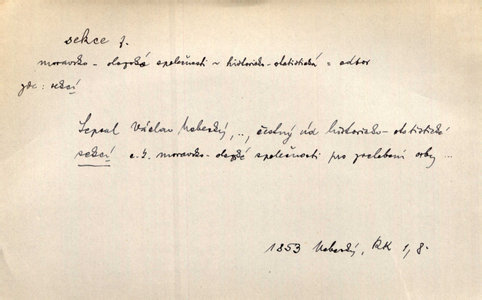 sekce f.
moravsko-slezské společnosti ~ historicko-statistická = odbor
zde: sekcí
Sepsal Václav Nebeský, .., čestný úd historicko-statistické
sekcí c. k. moravsko-slezské společnosti pro zvelebení orby ...
1853 Nebeský, KK 1, 8.